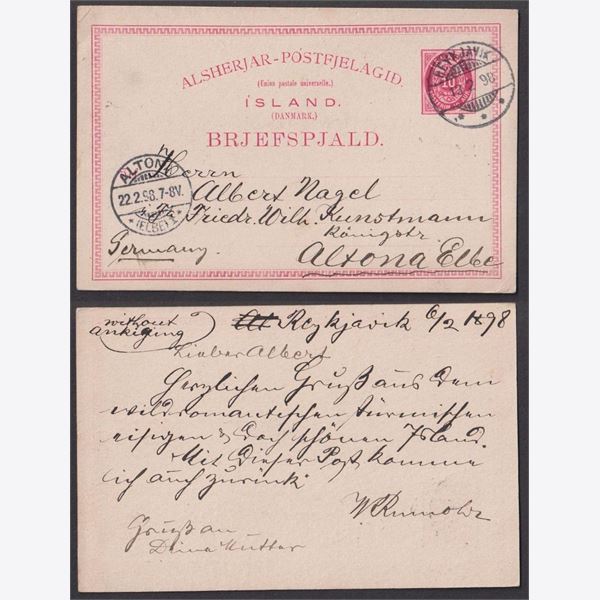 ALSHERJAR-PÓSTFJELAGID.
(Union postale universelle.)
ÍSLAND.
(DANMARK.)
BRJEFSPJALD.
REYKJAVIK
2 98
ALTONA
22.2.98.7-8V.
*(ELBE)1*
Herrn
Albert Nagel
Friedr. Wilh. Kunstmann
Königstr
Altona Elbe
Germany.
without
Reykjavik 6/2 1898
Lieber Albert
Herzlichen Gruß aus dem
wildromantischen stürmischen
eisigen & doch schönen Island.
Mit dieser Post komme
ich auch zurück
Gruß an
Deine Mutter